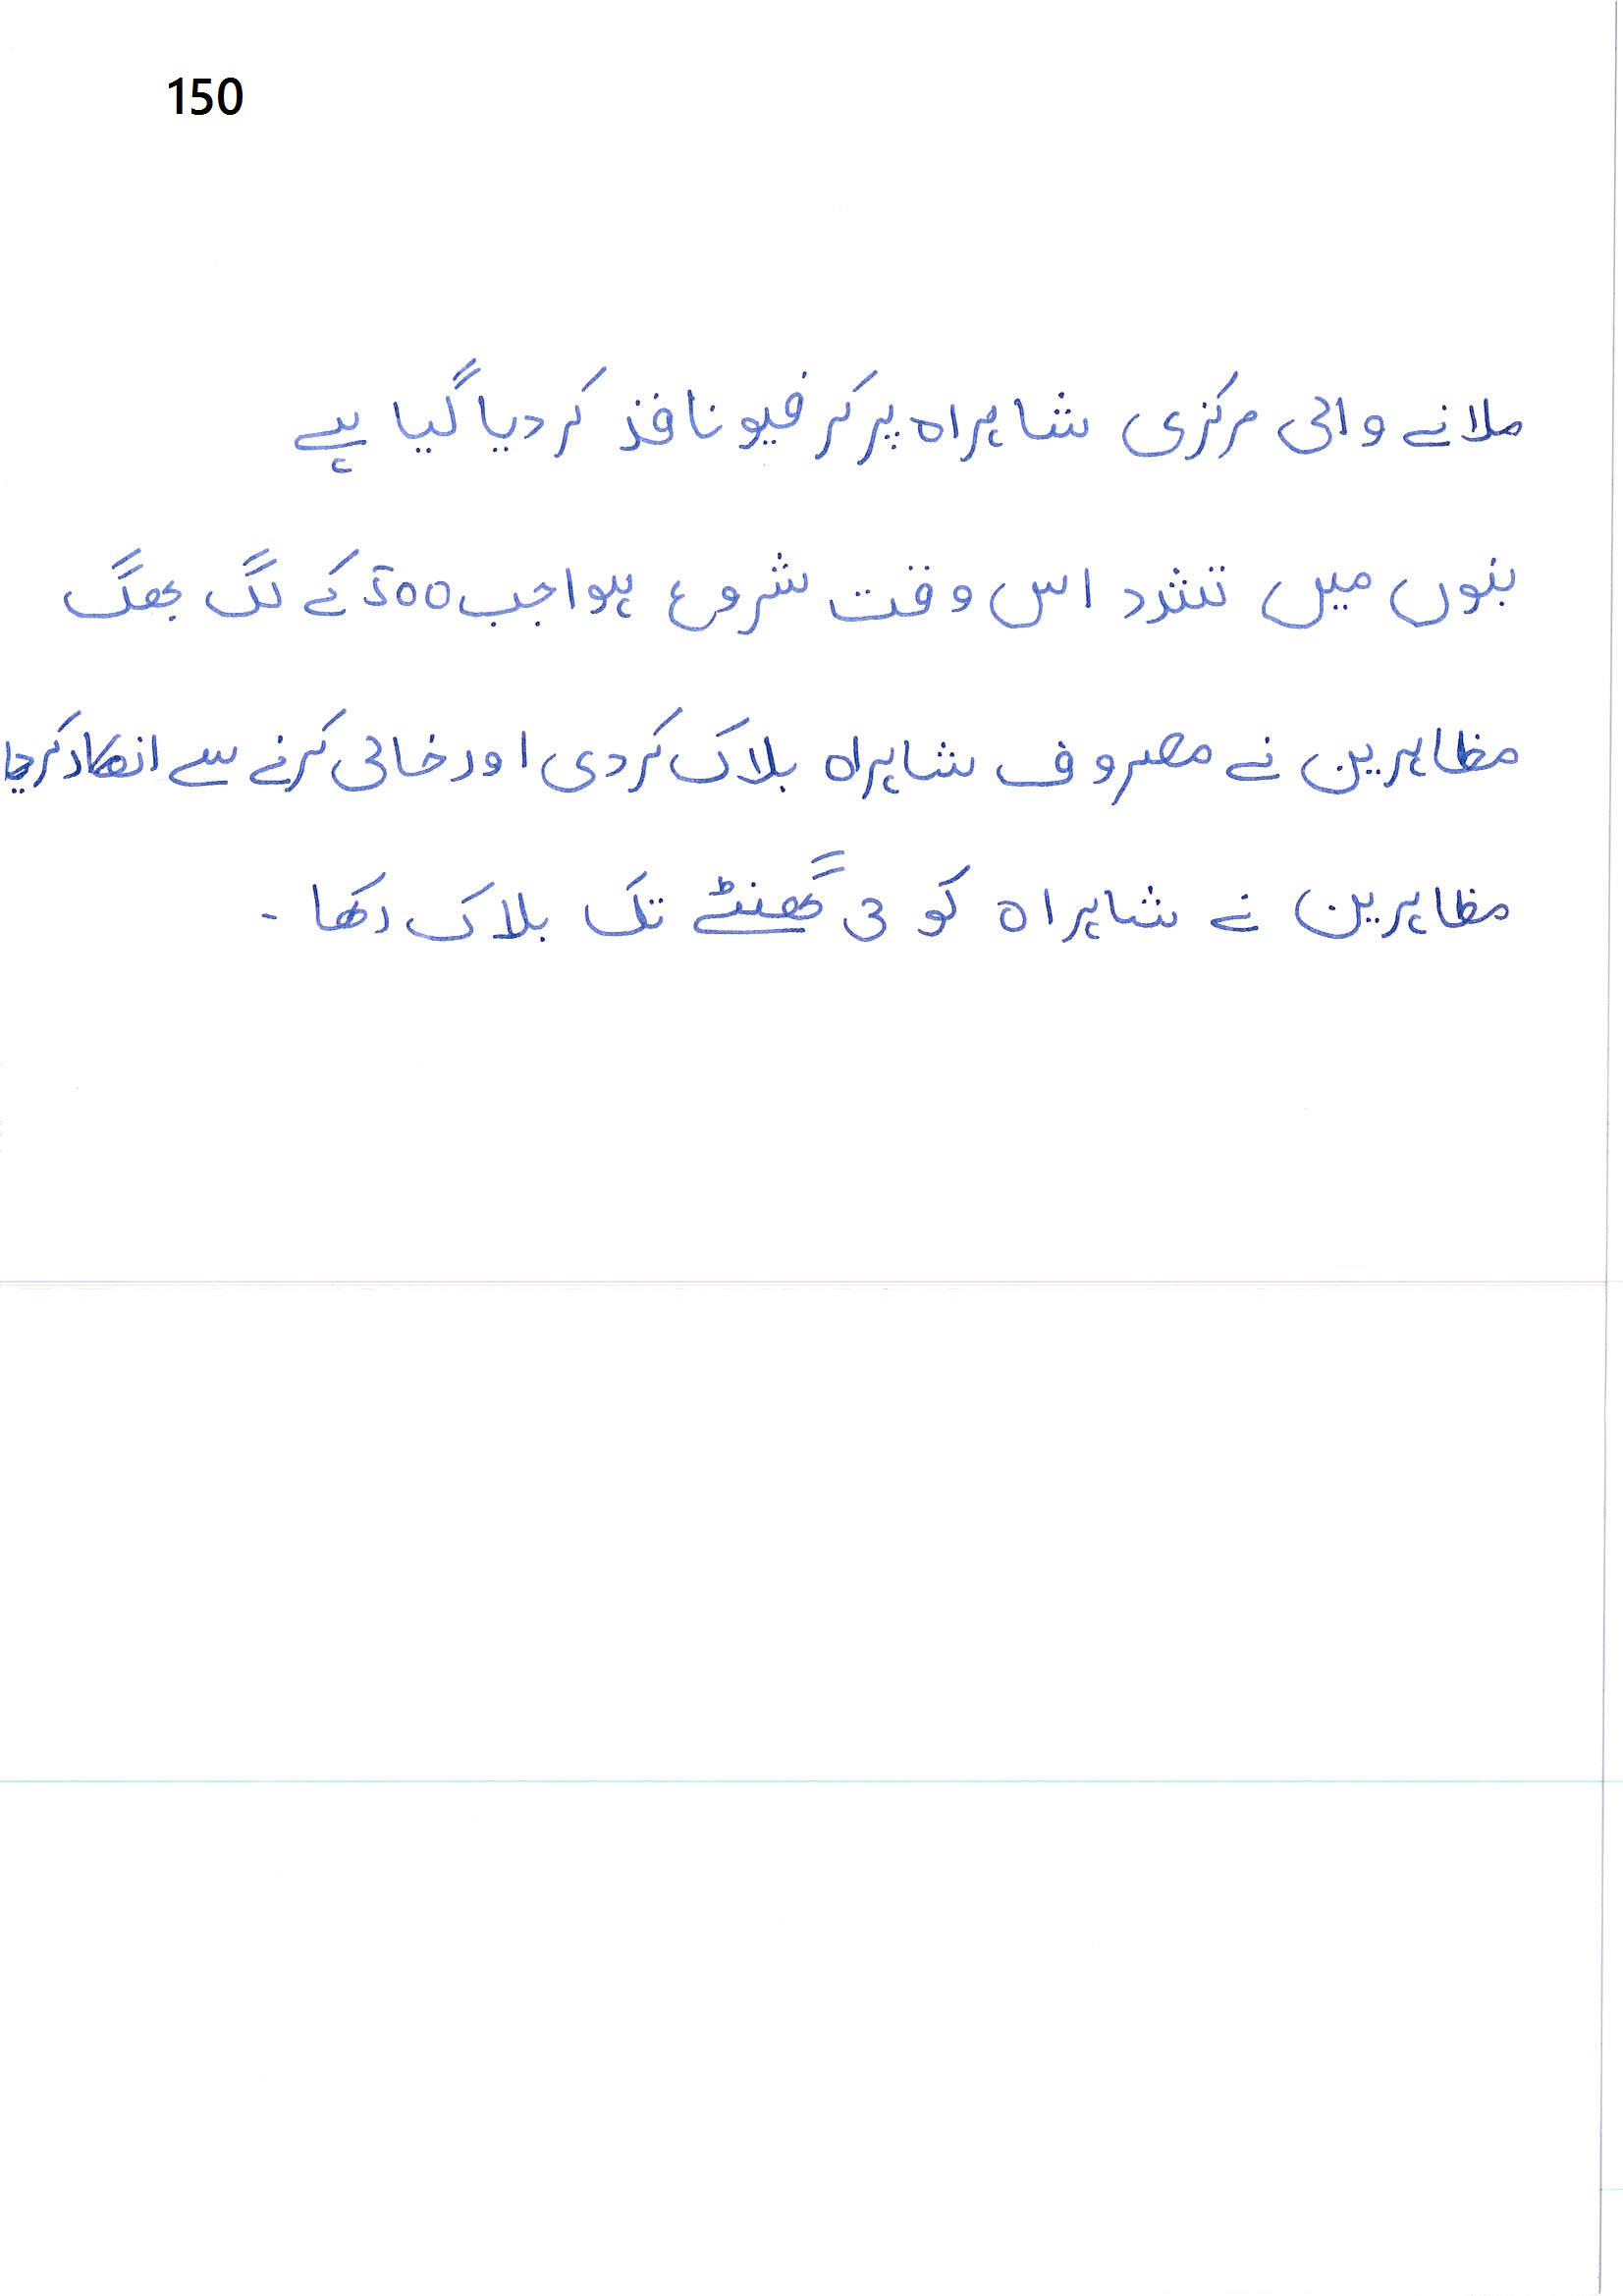 150
ملانے والی مرکزی شاہراہ پر کرفیو نافذ کر دیا گیا ہے
بنوں میں تشدد اس وقت شروع ہوا جب 500 کے لگ بھگ
مظاہرین نے مصروف شاہراہ بلاک کر دی اور خالی کرنے سے انکار کر دیا
مظاہرین نے شاہراہ کو گھنٹے تک بلاک رکھا ۔